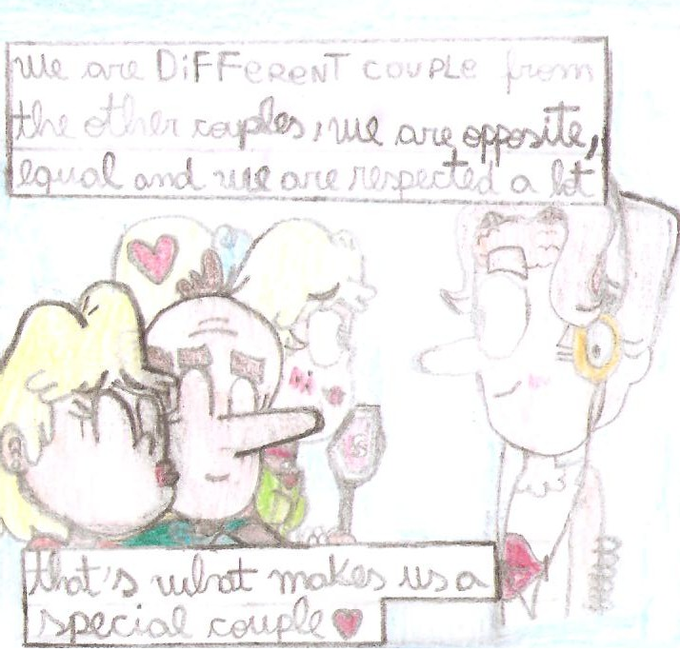 We are DiFFERENT COUPLE from
the other couples, we are opposite,
equal and we are respected a lot
that's what makes us a
special couple ♥